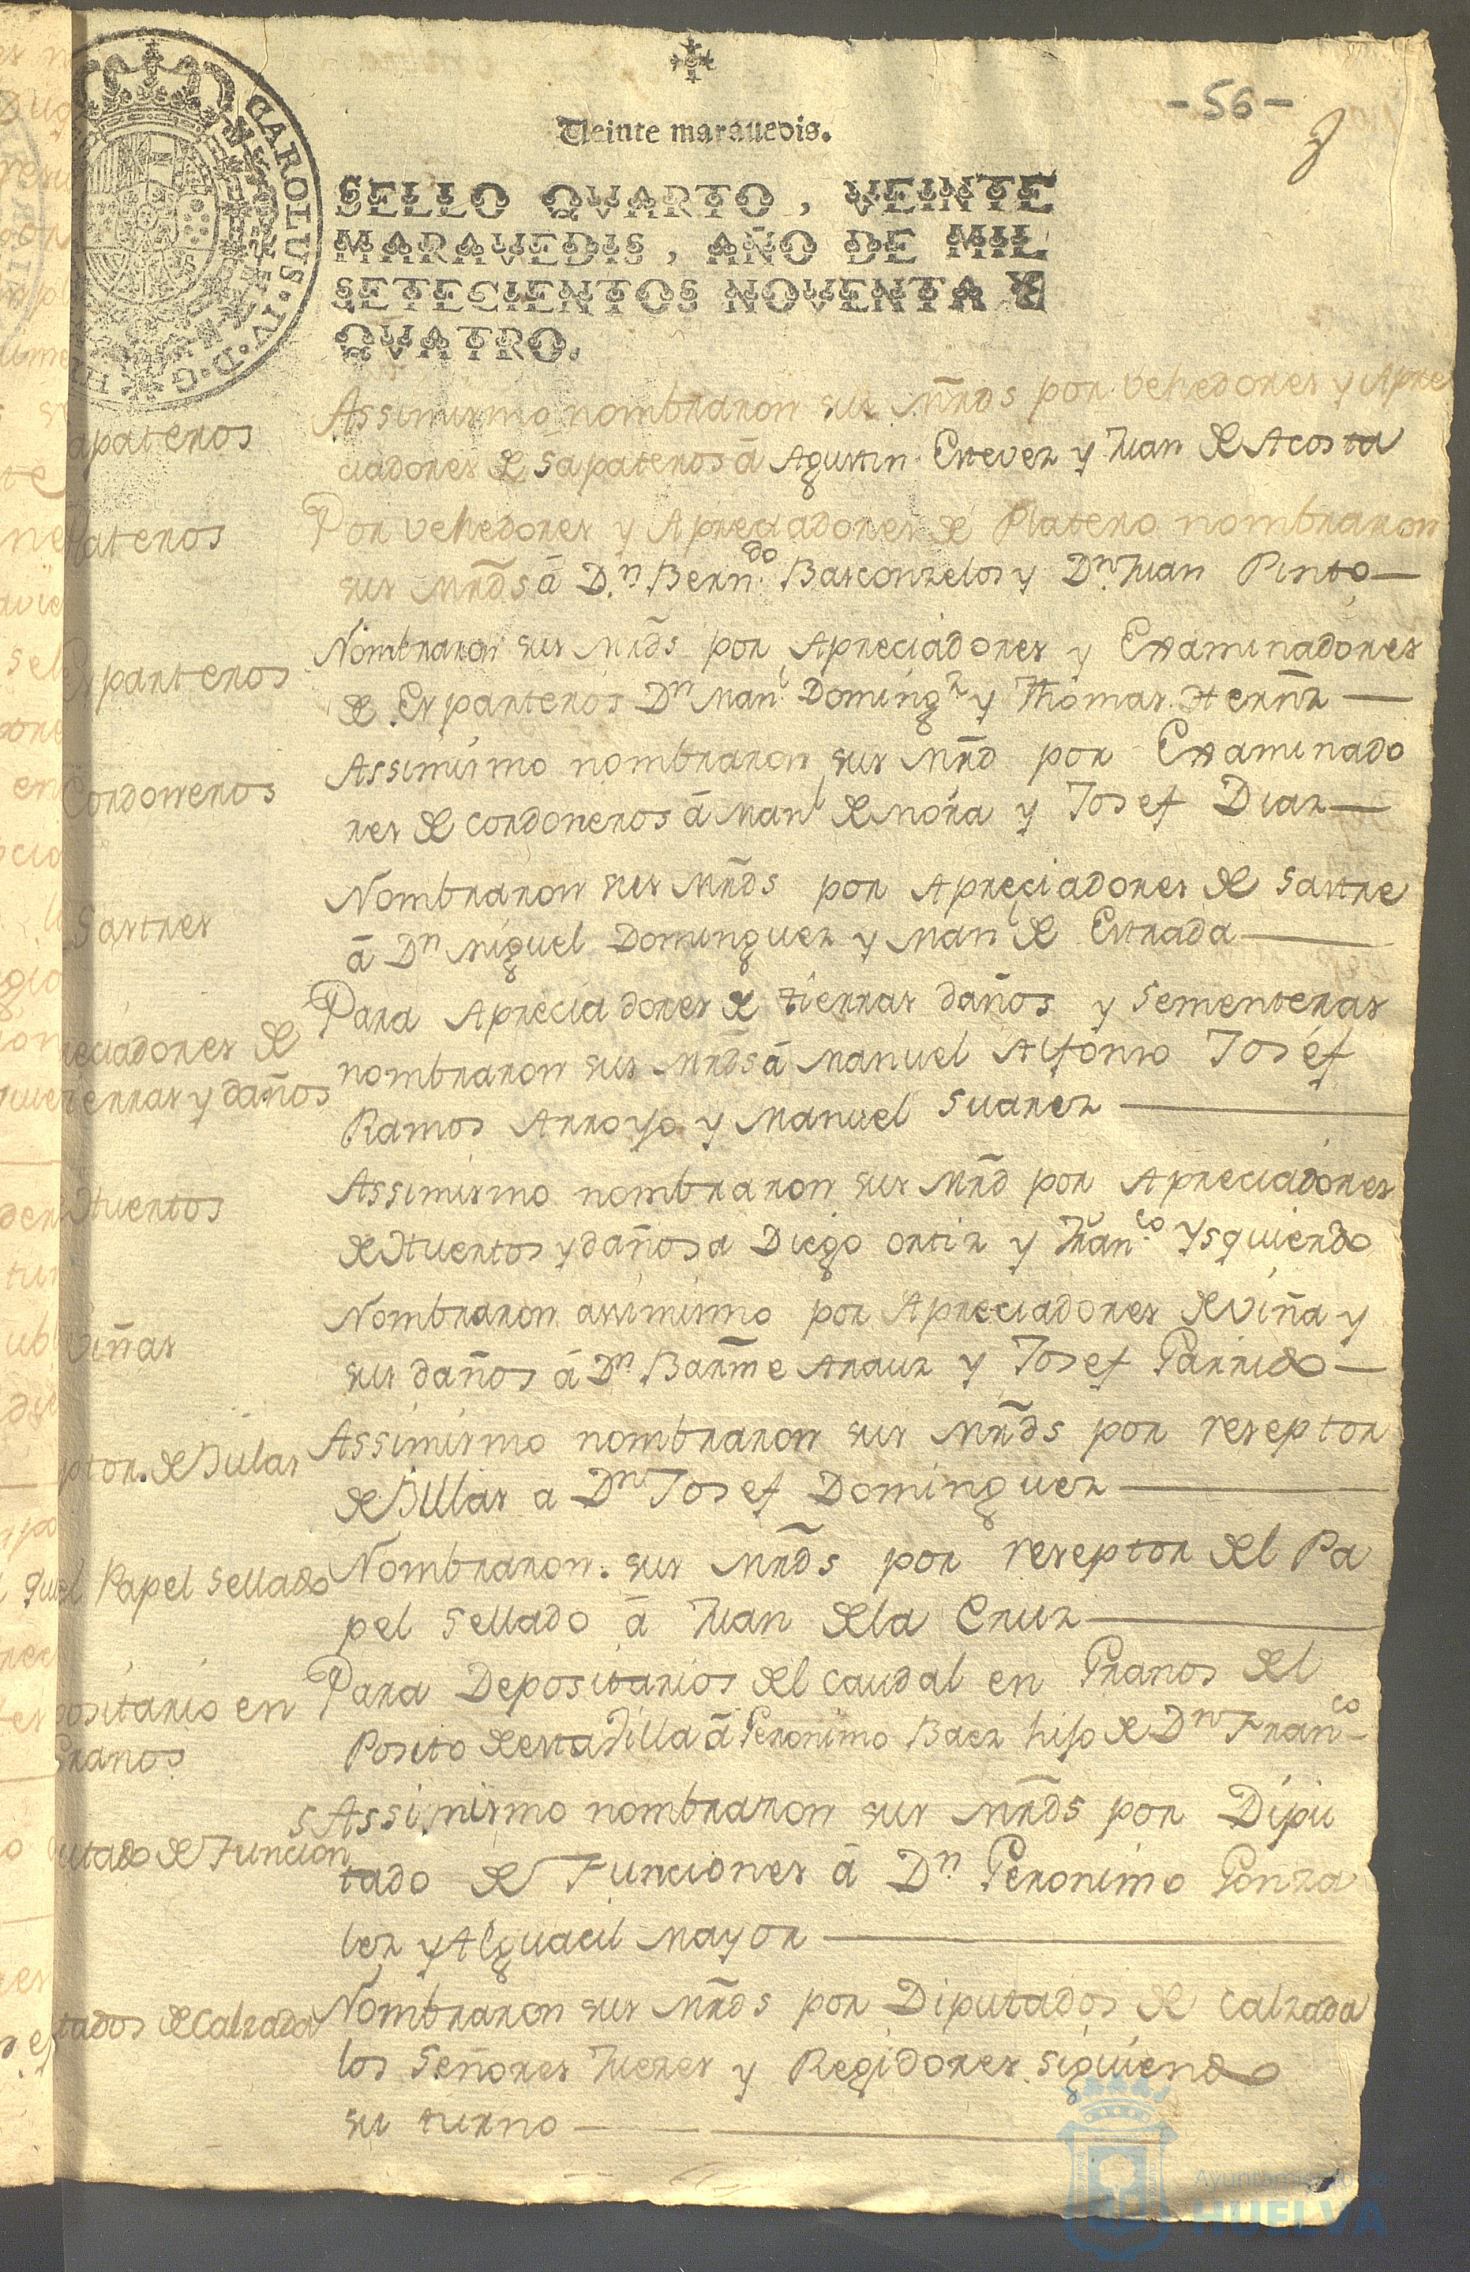 -56-
Veinte marauedis.
CAROLUS·IV·D·G·
SELLO QVARTO, VEINTE
MARAVEDIS, AÑO DE MIL
SETECIENTOS NOVENTA Y
QVATRO.
Assimismo nombraron sus Mrds por vehedores y Apre
apateros
ciadores de Sapateros á Agustin Estevez y Juan de Acosta
lateros
Por vehedores y Apreciadores de Platero nombraron
sus Mrds á Dn. Berndo. Basconzelos y Dn. Juan Pinto
Nombraron sus Mrds por Apreciadores y Examinadores
sparteros
de Esparteros Dn Manl Domingz y Thomas Hernz
Assimismo nombraron sus Mrd por Examinado
Cordoneros
res de Cordoneros á Manl de Mora y Josef Diaz
Nombraron sus Mrds por Apreciadores de Sastre
Sastres
á Dn Miguel Dominguez y Manl de Estrada
Para Apreciadores de tierras daños y Sementeras
reciadores de
nombraron sus Mrds á Manuel Alfonso Josef
ierras y daños
Ramos Arroyo y Manuel Suarez
Assimismo nombraron sus Mrd por Apreciadores
Huertos
de Huertos y daños a Diego Ortiz y Franco. Ysquierdo
Nombraron assimismo por Apreciadores de viña y
viñas
sus daños á Dn Barme Arauz y Josef Garrido
Assimismo nombraron sus Mrds por reseptor
ptor. de Bulas
de Bullas a Dn Josef Dominguez
Nombraron sus Mrds por reseptor del Pa
el Papel Sellado
pel Sellado á Juan de la Cruz
Para Depositarios del Caudal en Granos del
positario en
Granos
Posito de esta Villa á Geronimo Baez hijo de Dn Franco
Assimismo nombraron sus Mrds por Dipu
utado de Funcion
tado de Funciones á Dn Geronimo Gonza
lez y Alguacil Mayor
Nombraron sus Mrds por Diputados de Calzada
tados de Calzada
los Señores Juezes y Regidores siguiendo
su turno
Ayuntamiento de
HUELVA